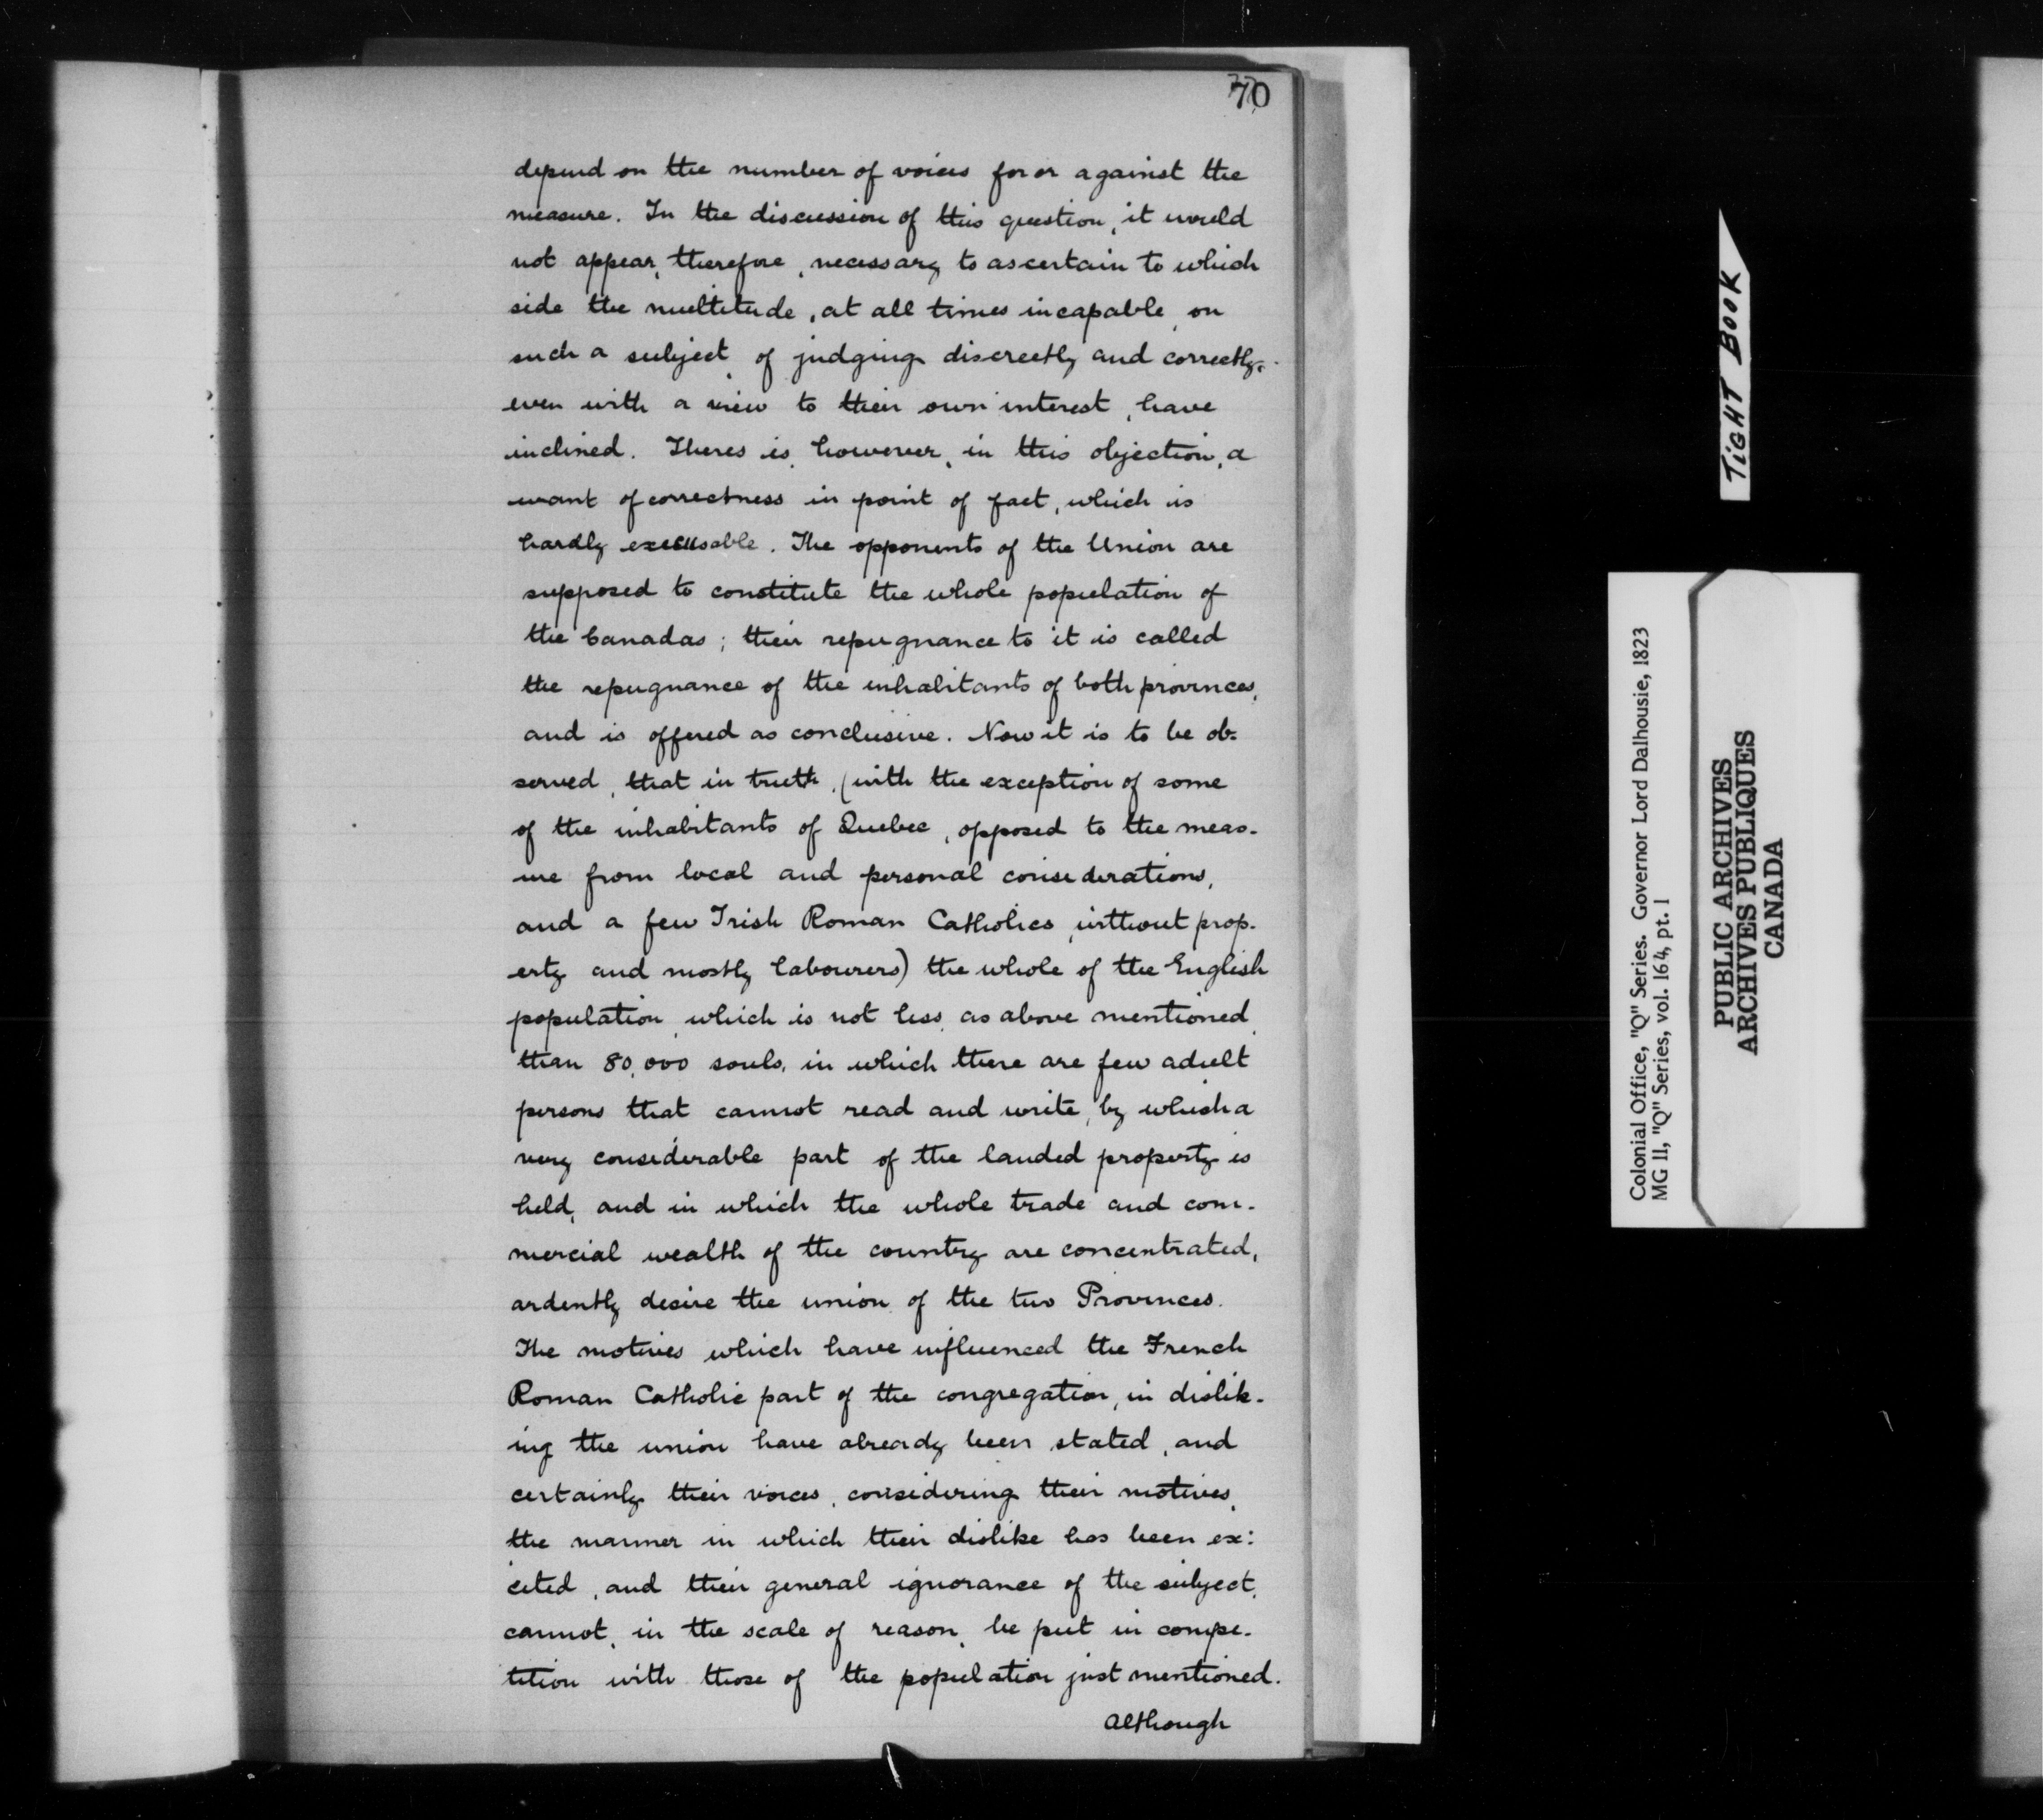 70
depend on the number of voices for or against the
measure. In the discussion of this question, it would
not appear, therefore, necessary to ascertain to which
side the multitude, at all times incapable, on
such a subject, of judging discreetly and correctly,
even with a view to their own interest, have
inclined. Theres is, however, in this objection, a
want of correctness in point of fact, which is
hardly excusable. The opponents of the Union are
supposed to constitute the whole population of
the Canadas; their repugnance to it is called
the repugnance of the inhabitants of both provinces,
and is offered as conclusive. Now it is to be ob-
served, that in truth, (with the exception of some
of the inhabitants of Quebec, opposed to the meas-
ure from local and personal considerations,
and a few Irish Roman Catholics, without prop-
erty and mostly labourers) the whole of the English
population, which is not less, as above mentioned,
than 80,000 souls, in which there are few adult
persons that cannot read and write, by which a
very considerable part of the landed property is
held, and in which the whole trade and com-
mercial wealth of the country are concentrated,
ardently desire the union of the two Provinces.
The motives which have influenced the French
Roman Catholic part of the congregation, in dislik-
ing the union have already been stated, and
certainly their voices, considering their motives,
the manner in which their dislike has been ex:
cited, and their general ignorance of the subject,
cannot, in the scale of reason, be put in compe-
tition with those of the population just mentioned.
Although
TIGHT BOOK
Colonial Office, "Q" Series. Governor Lord Dalhousie, 1823
MG 11, "Q" Series, vol. 164, pt. 1
PUBLIC ARCHIVES
ARCHIVES PUBLIQUES
CANADA